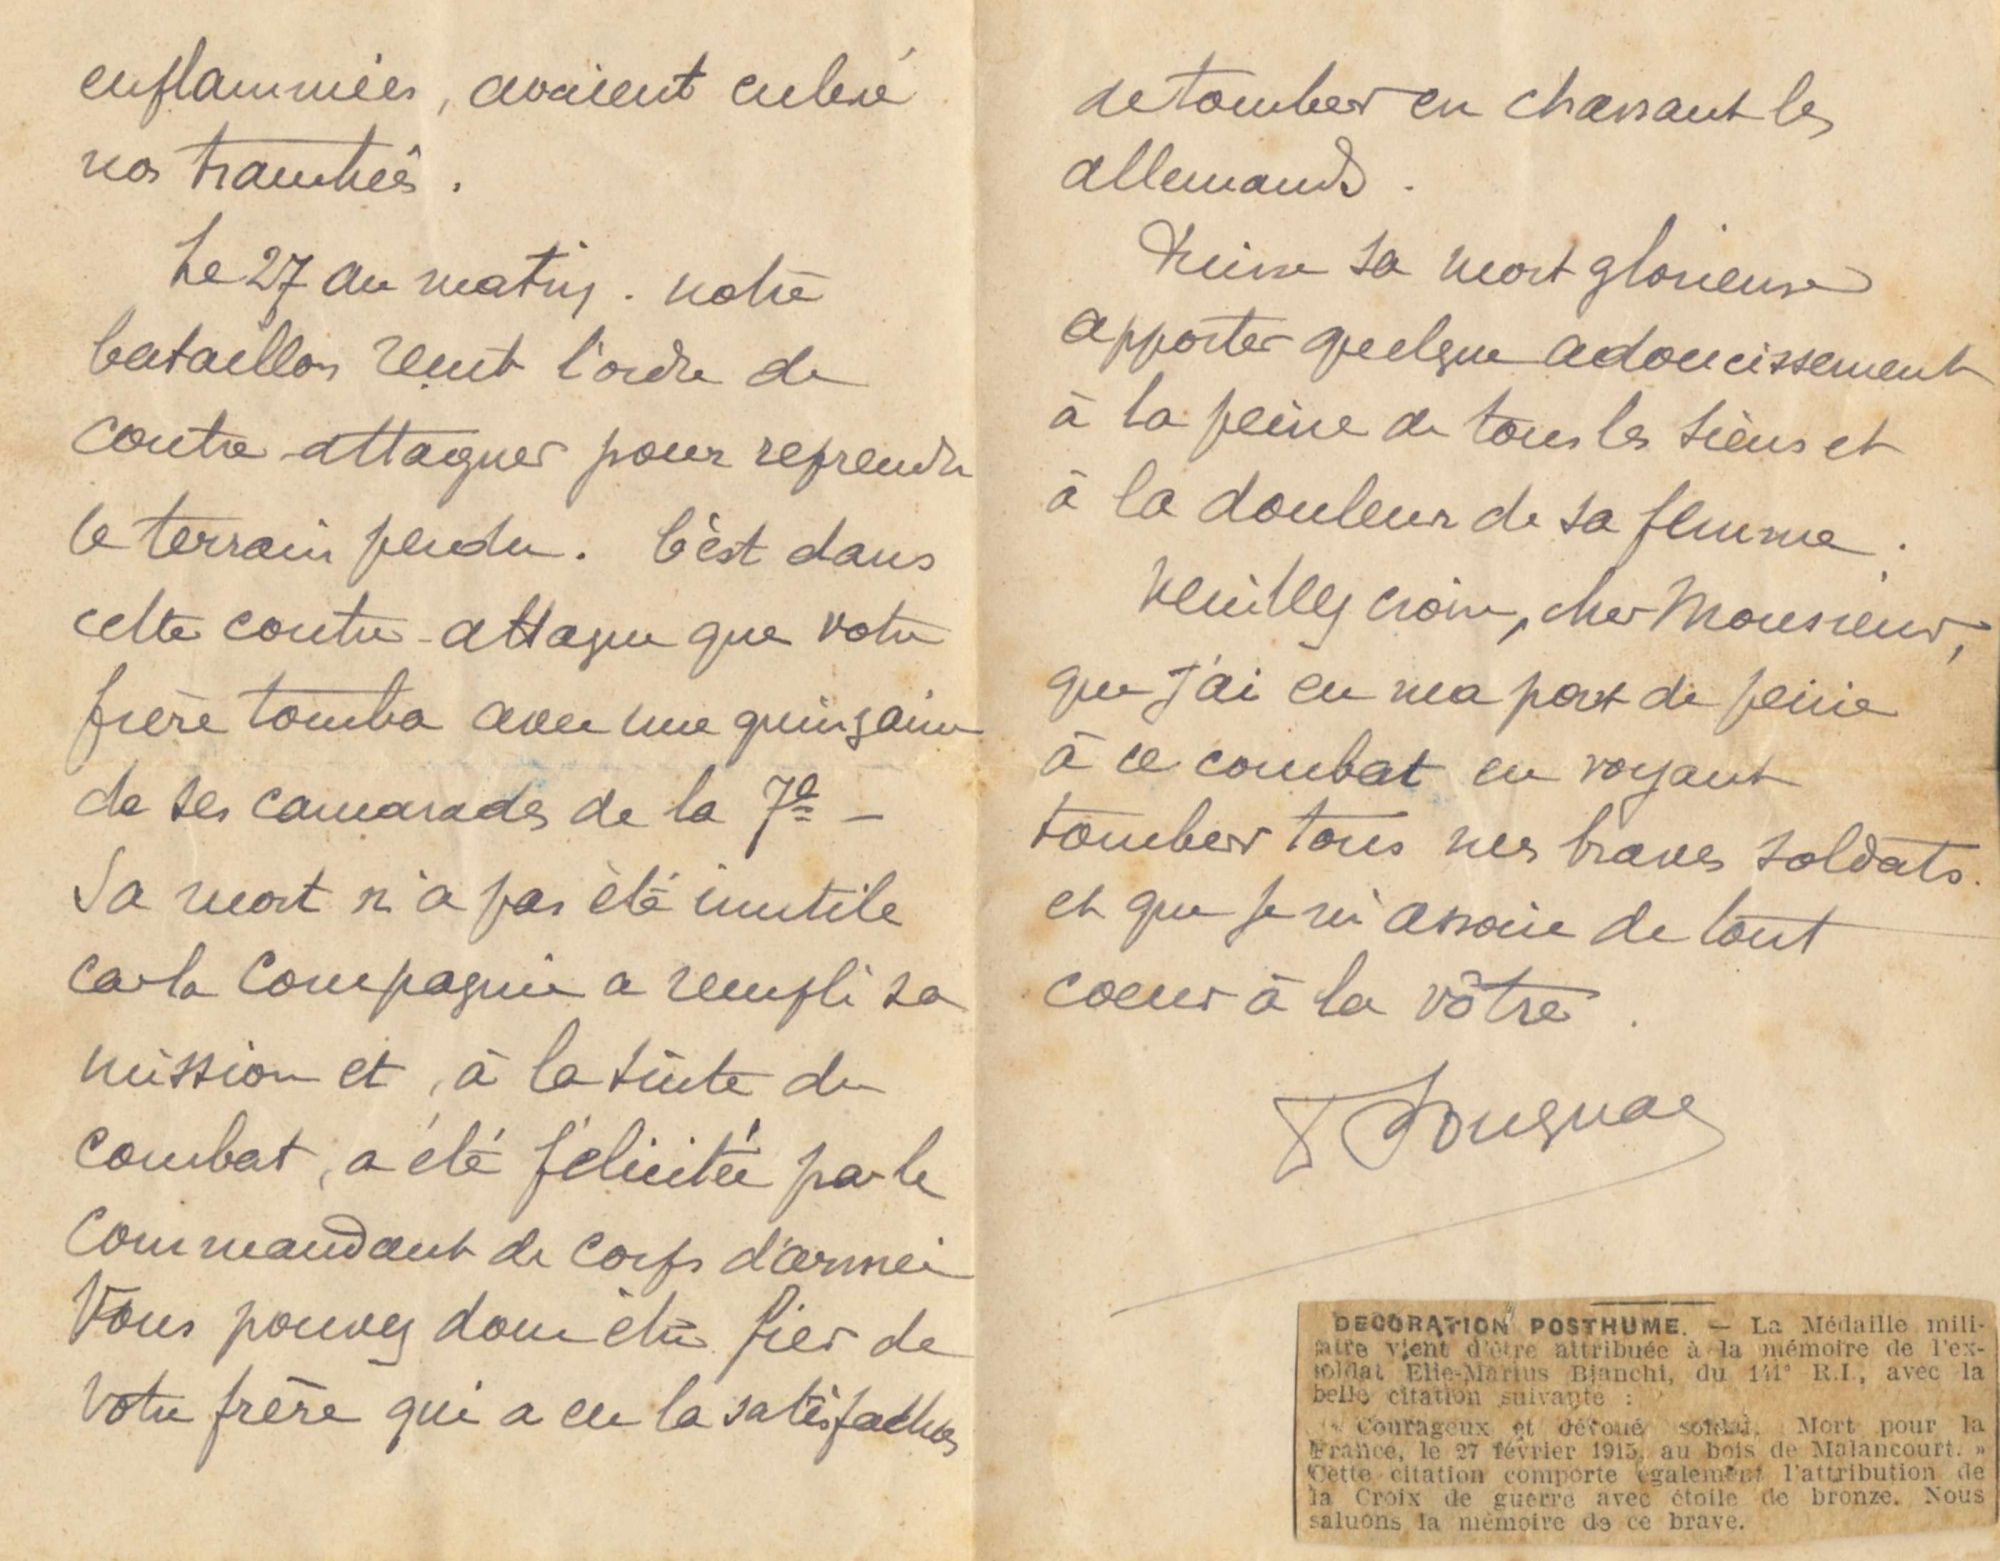 enflammées, avaient enlevé
nos tranchées.
Le 27 au matin. notre
bataillon reçut l'ordre de
contre-attaquer pour reprendre
le terrain perdu. C'est dans
cette contre-attaque que votre
frère tomba avec une quinzaine
de ses camarades de la 7e —
Sa mort n'a pas été inutile
car la Compagnie a rempli sa
mission et, à la suite du
combat, a été félicitée par le
Commandant de Corps d'armée
Vous pouvez donc être fier de
votre frère qui a eu la satisfaction
de tomber en chassant les
allemands.
Puisse sa mort glorieuse
apporter quelque adoucissement
à la peine de tous les siens et
à la douleur de sa femme.
Veuillez croire, cher Monsieur,
que j'ai eu ma part de peine
à ce combat en voyant
tomber tous mes braves soldats.
et que je m'associe de tout
coeur à la vôtre.
DECORATION POSTHUME. — La Médaille mili-
taire vient d'être attribuée à la mémoire de l'ex-
soldat Elie-Marius Bianchi, du 141° R.I., avec la
belle citation suivante :
« Courageux et dévoué soldat. Mort pour la
France, le 27 février 1915, au bois de Malancourt. »
Cette citation comporte également l'attribution de
la Croix de guerre avec étoile de bronze. Nous
saluons la mémoire de ce brave.